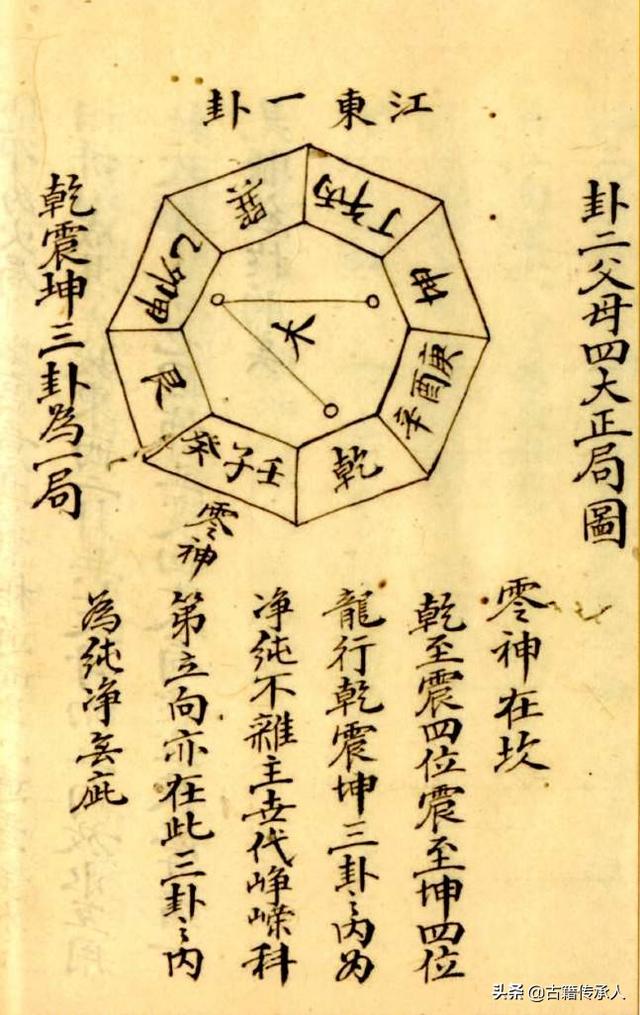 卦二父母四大正局圖
江東一卦
丙午丁
坤
庚酉辛
乾
壬子癸
艮
甲卯乙
巽
大
零神
乾震坤三卦為一局
零神在坎
乾至震四位震至坤四位
龍行乾震坤三卦之內為
净純不雜主世代崢嶸科
第立向亦在此三卦之內
為純净無疵
头条 @古籍传承人